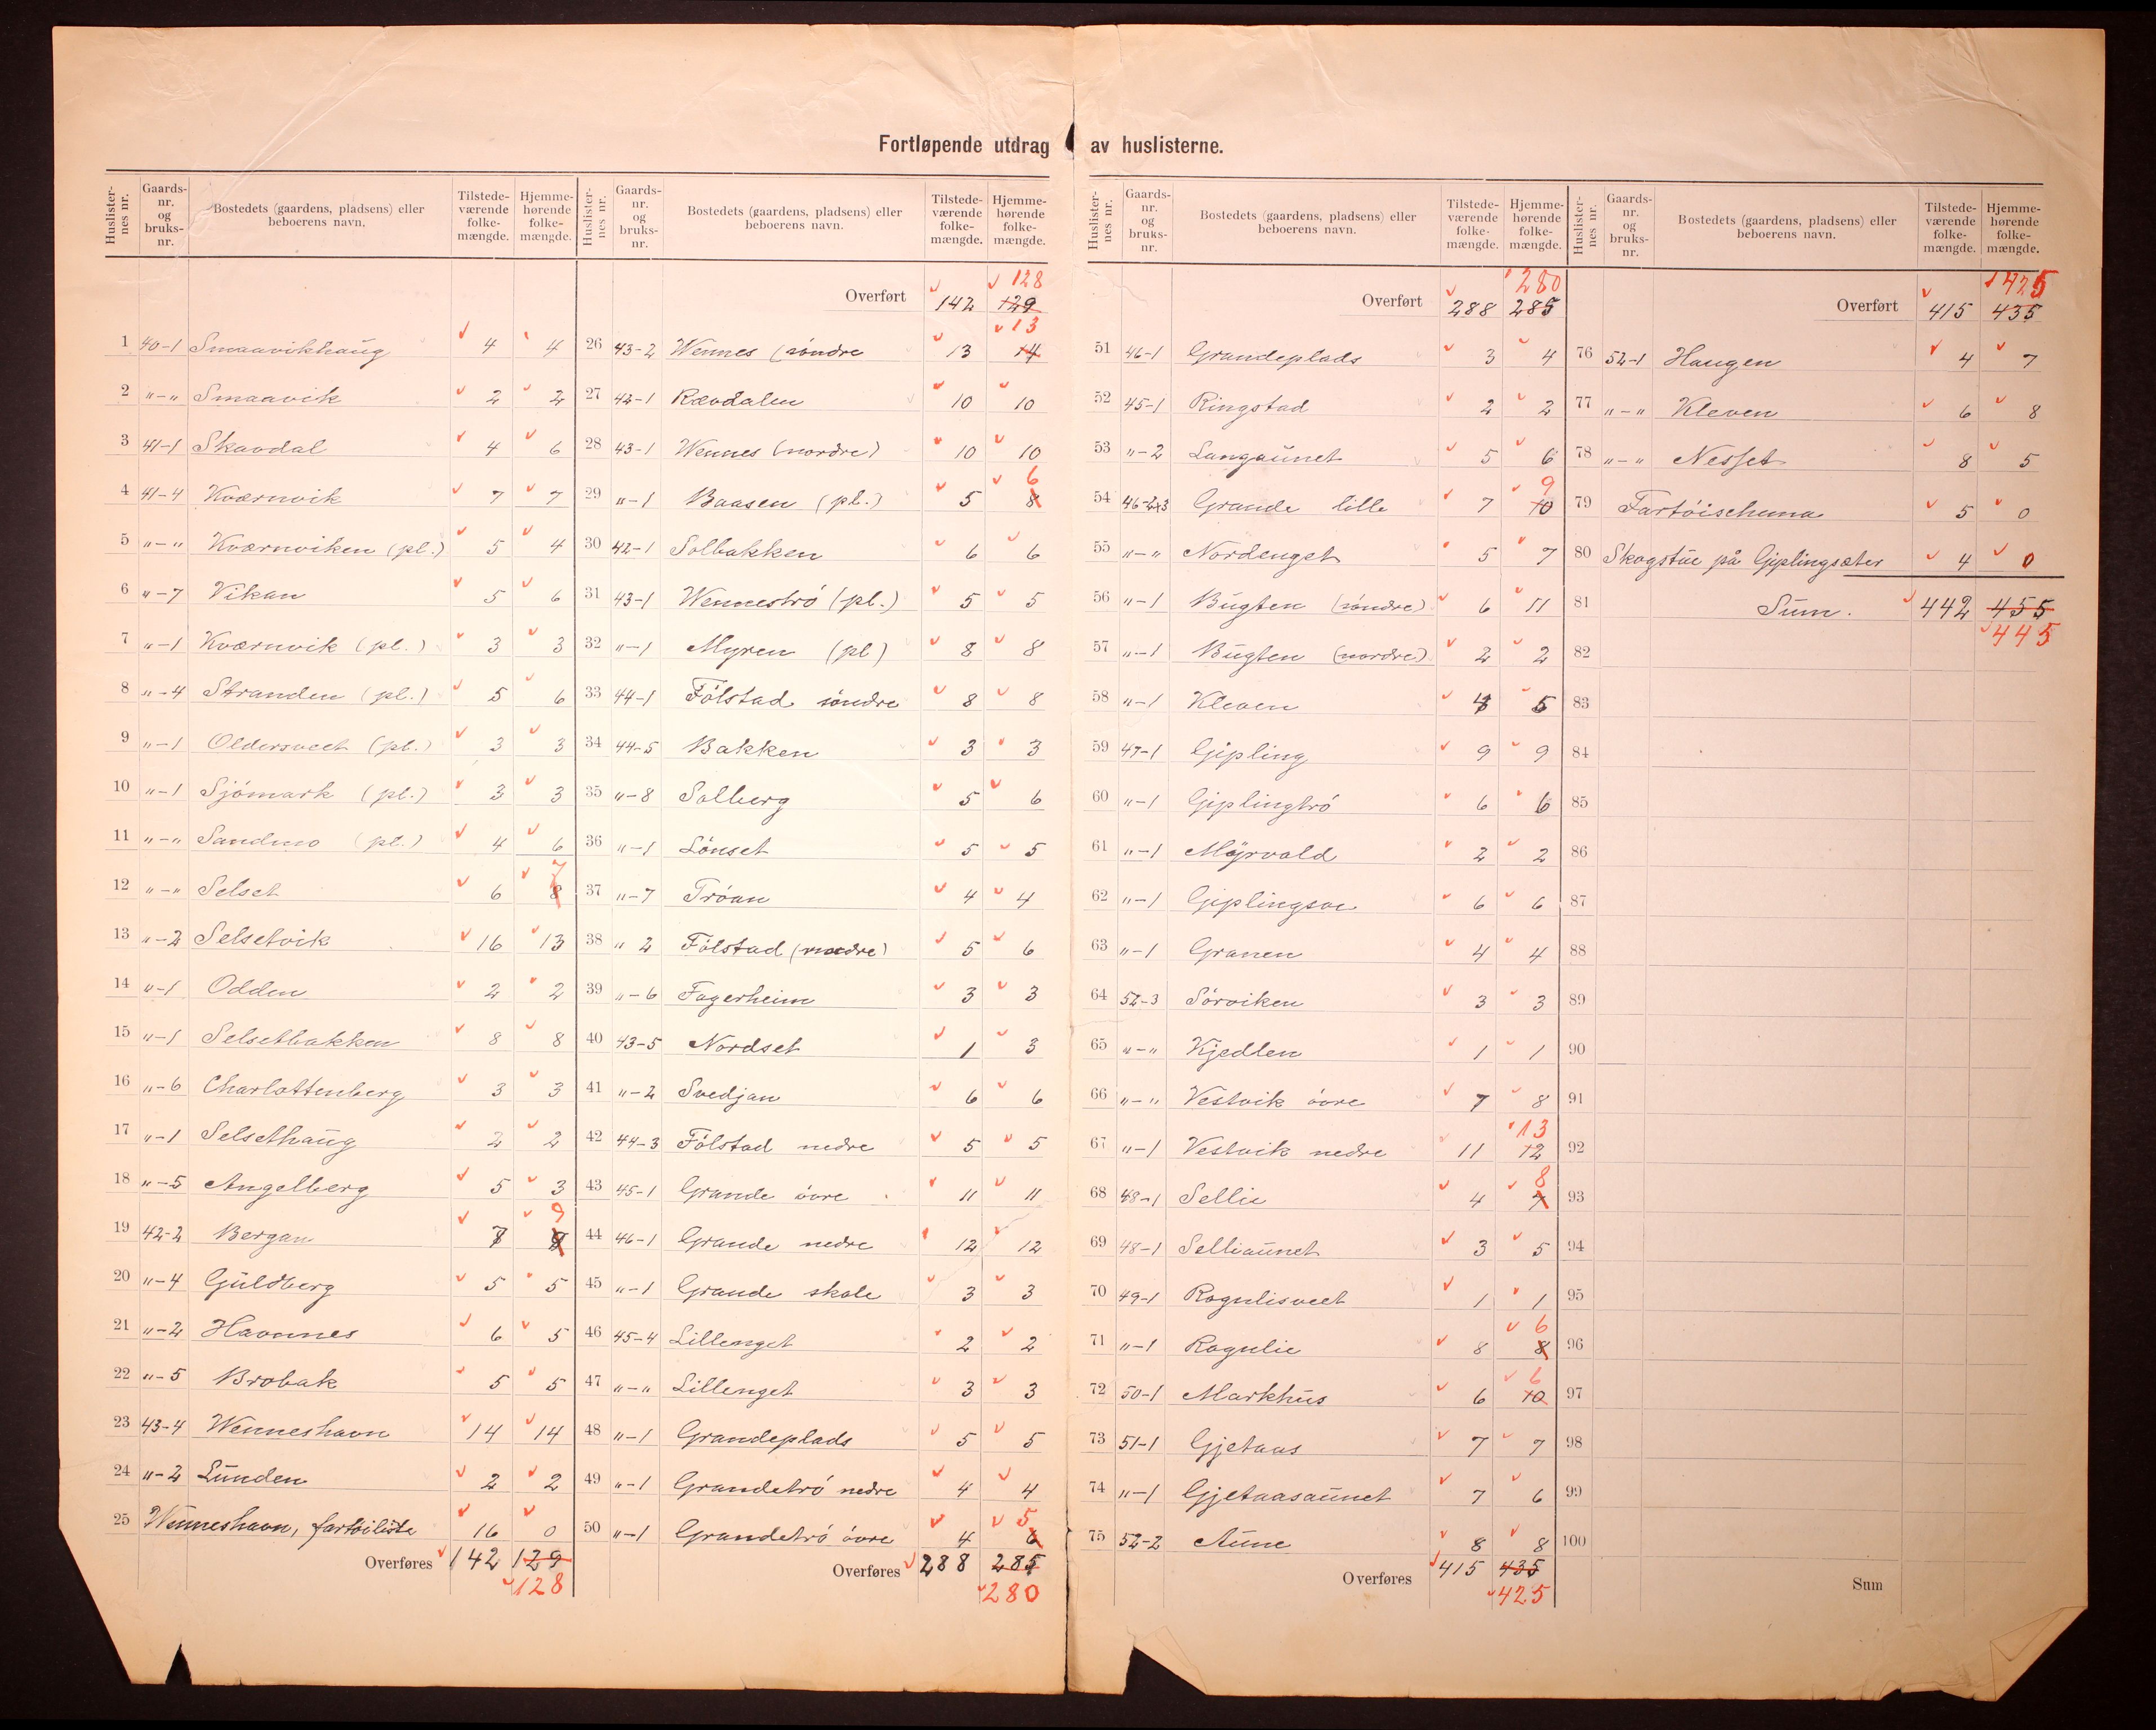 Fortløpende utdrag av huslisterne.
Huslisternes nr. | Gaards-nr. og bruks-nr. | Bostedets (gaardens, pladsens) eller beboerens navn. | Tilstedeværende folkemængde. | Hjemmehørende folkemængde.
1 40-1 Smaavikhaug 4 4
2 "-" Smaavik 2 2
3 41-1 Skavdal 4 6
4 41-4 Kværnvik 7 7
5 "-" Kværnviken (pl.) 5 4
6 "-7 Vikan 5 6
7 "-1 Kværnvik (pl.) 3 3
8 "-4 Stranden (pl.) 5 6
9 "-1 Oldersveet (pl.) 3 3
10 "-1 Sjömark (pl.) 3 3
11 "-" Sandmo (pl.) 4 6
12 "-" Selset 6 8 7
13 "-2 Selsetvik 16 13
14 "-1 Odden 2 2
15 "-1 Selsetbakken 8 8
16 "-6 Charlottenberg 3 3
17 "-1 Selsethaug 2 2
18 "-5 Angelberg 5 3
19 42-2 Bergan 9
20 "-4 Guldberg 5 5
21 "-2 Havnnes 6 5
22 "-5 Brobak 5 5
23 43-4 Wenneshavn 14 14
24 "-2 Lunden 2 2
25 Wenneshavn, fartöiliste 16 0
Overføres 142 129
128
Huslisternes nr. | Gaards-nr. og bruks-nr. | Bostedets (gaardens, pladsens) eller beboerens navn. | Tilstedeværende folkemængde. | Hjemmehørende folkemængde.
128
Overført 142 129
26 43-2 Wennes (söndre 13 14 13
27 42-1 Rævdalen 10 10
28 43-1 Wennes (nordre) 10 10
29 "-1 Baasen (pl.) 5 8 6
30 42-1 Solbakken 6 6
31 43-1 Wenneströ (pl.) 5 5
32 "-1 Myren (pl) 8 8
33 44-1 Fölstad söndre 8 8
34 44-5 Bakken 3 3
35 "-8 Solberg 5 6
36 "-1 Lönset 5 5
37 "-7 Tröan 4 4
38 " 2 Fölstad 5 6
39 "-6 Fagerheim 3 3
40 43-5 Nordset 1 3
41 "-2 Svedjan 6 6
42 44-3 Fölstad nedre 5 5
43 45-1 Grande övre 11 11
44 46-1 Grande nedre 12 12
45 "-1 Grande skole 3 3
46 45-4 Lillenget 2 2
47 "-" Lillenget 3 3
48 "-1 Grandeplads 5 5
49 "-1 Grandetrö nedre 4 4
50 "-1 Grandetrö övre 4 6 5
Overføres 288 285
280
Huslisternes nr. | Gaards-nr. og bruks-nr. | Bostedets (gaardens, pladsens) eller beboerens navn. | Tilstedeværende folkemængde. | Hjemmehørende folkemængde.
280
Overført 288 285
51 46-1 Grandeplads 3 4
52 45-1 Ringstad 2 2
53 "-2 Langaunet 5 6
54 46-2x3 Grande lille 7 10 9
55 "-" Nordenget 5 7
56 "-1 Bugten (söndre) 6 11
57 "-1 Bugten (nordre) 2 2
58 "-1 Kleven 4 5
59 47-1 Gipling 9 9
60 "-1 Giplingtrö 6 6
61 "-1 Myrvold 2 2
62 "-1 Giplingsve 6 6
63 "-1 Granen 4 4
64 52-3 Sörviken 3 3
65 "-" Kjedlen 1 1
66 "-" Vestvik övre 7 8
67 "-1 Vestvik nedre 11 12 13
68 48-1 Sellie 4 7 8
69 48-1 Selliaunet 3 5
70 49-1 Rogulisveet 1 1
71 "-1 Rogulie 8 8 6
72 50-1 Markhus 6 10 6
73 51-1 Gjetaas 7 7
74 "-1 Gjetaasaunet 7 6
75 52-2 Aune 8 8
Overføres 415 435
425
Huslisternes nr. | Gaards-nr. og bruks-nr. | Bostedets (gaardens, pladsens) eller beboerens navn. | Tilstedeværende folkemængde. | Hjemmehørende folkemængde.
425
Overført 415 435
76 52-1 Haugen 4 7
77 "-" Kleven 6 8
78 "-" Nesset 8 5
79 Fartöischema 5 0
80 Skogstue på Giplingsæter 4 0
81 Sum. 442 455
82 445
83
84
85
86
87
88
89
90
91
92
93
94
95
96
97
98
99
100
Sum